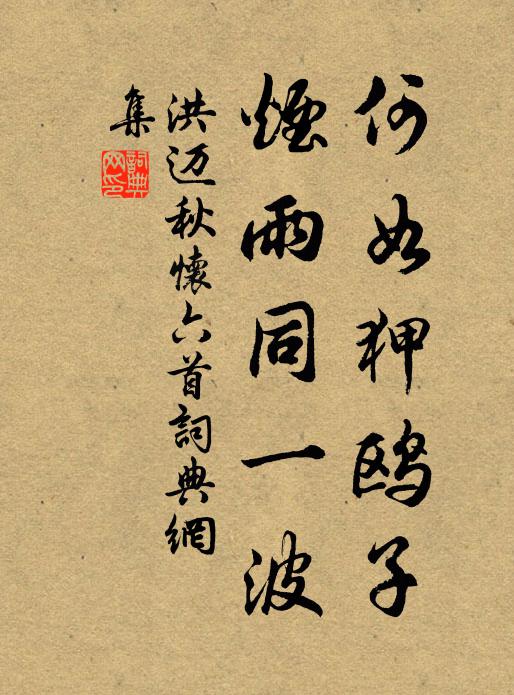 何如狎鷗子
煙雨同一波
洪迈秋懷六首詞典網
集
詞典
网印